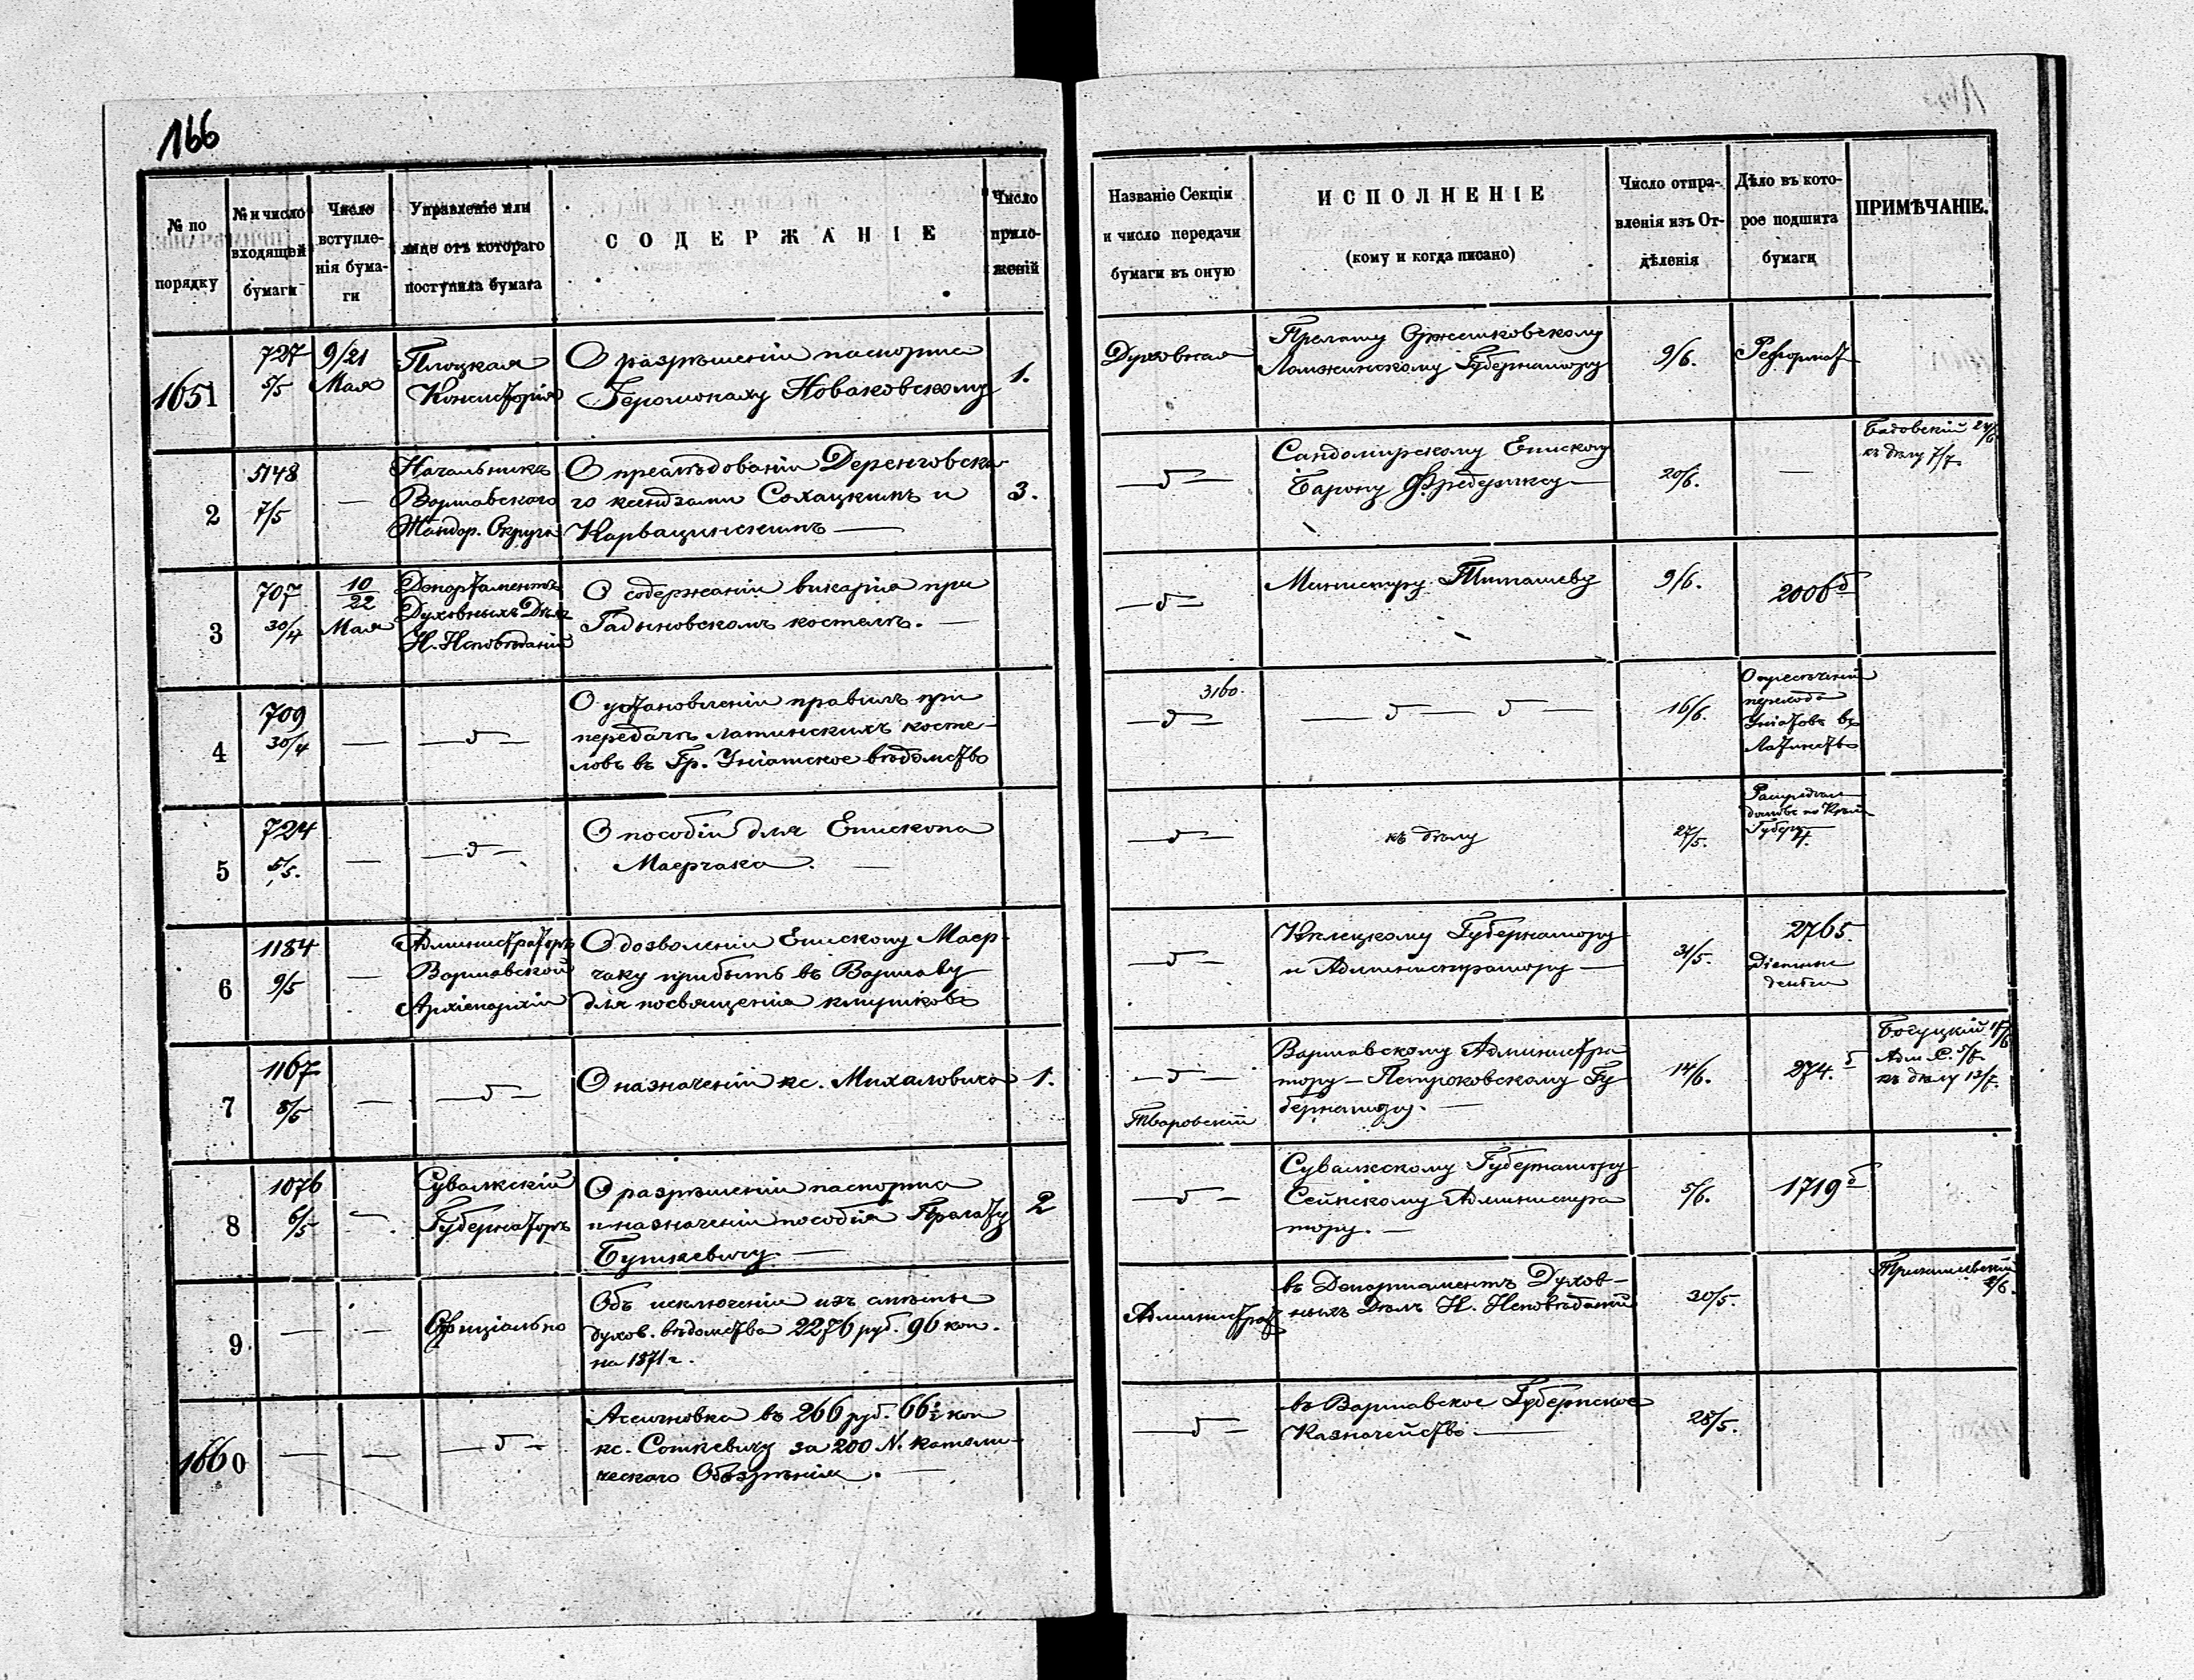 166
№ по порядку
№ и число входящей бумаги
Число вступленія бумаги
Управленіе или лице отъ котораго поступила бумага
СОДЕРЖАНІЕ
Число приложеній
Названіе Секціи и число передачи бумаги въ оную
ИСПОЛНЕНІЕ
(кому и когда писано)
Число отправленія изъ Отдѣленія
Дѣло въ которое подшита бумаги
ПРИМѢЧАНІЕ.
1651
727
5/5
9/21
Мая
Плоцкая
Консисторія
О разрѣшеніи паспорта
Іеромонаху Новаковскому
1.
Духовная
Прелату Оржешковскому
Ломжинскому Губернатору
9/6.
Реформат
2
5148
7/5
—
Начальникъ
Варшавскаго
Жандар. Округа
О преслѣдованіи Деренговска-
го ксендзами Сохацкимъ и
Карвацинскимъ —
3.
Сандомирскому Епископу
Барону Фредериксу —
20/6.
—
къ дѣлу 7/7.
3
707
30/4
10/22
Мая
Департаментъ
Духовныхъ Дѣлъ
И. Исповѣданій
О содержаніи викарія при
Гадыновскомъ костелѣ. —
Министру Тимашеву
9/6.
2006 б
4
709
30/4
—
О установленіи правилъ при
передачѣ латинскихъ косте-
ловъ въ Гр. Уніатское вѣдомство
3160.
16/6.
О пресѣченіи
перехода
Уніатовъ въ
Латинство
5
724
5/5.
—
О пособіи для Епископа
Маерчака. —
къ дѣлу
27/5.
Губерн
6
1184
9/5
—
Администраторъ
Варшавской
Архіепархіи
О дозволеніи Епископу Маер-
чаку прибыть въ Варшаву
для посвященія клириковъ
Кѣлецкому Губернатору
и Администратору —
31/5.
2765.
7
1167
8/5
—
О назначеніи кс. Михаловича
1.
Тваровскій
Варшавскому Администра
тору — Петроковскому Гу
бернатору. —
14/6.
274. б
Богуцкій
къ дѣлу 13/7.
8
1076
6/5
—
Сувалкскій
Губернаторъ
О разрѣшеніи паспорта
и назначеніи пособія Прелату
Буткевичу. —
2
Сувалкскому Губернатору
Сейнскому Администра
тору. —
5/6.
1719 б
9
—
—
Офиціально
Объ исключеніи изъ смѣты
духов. вѣдомства 2276 руб. 96 коп.
на 1871 г.
Администрат
въ Департаментъ Духов-
ныхъ Дѣлъ И. Исповѣданій
30/5.
1660
—
—
Ассигновка въ 266 руб. 66 ½ коп
кс. Соткевичу за 200 N. католи-
ческаго Обозрѣнія. —
въ Варшавское Губернское
Казначейство. —
28/5.